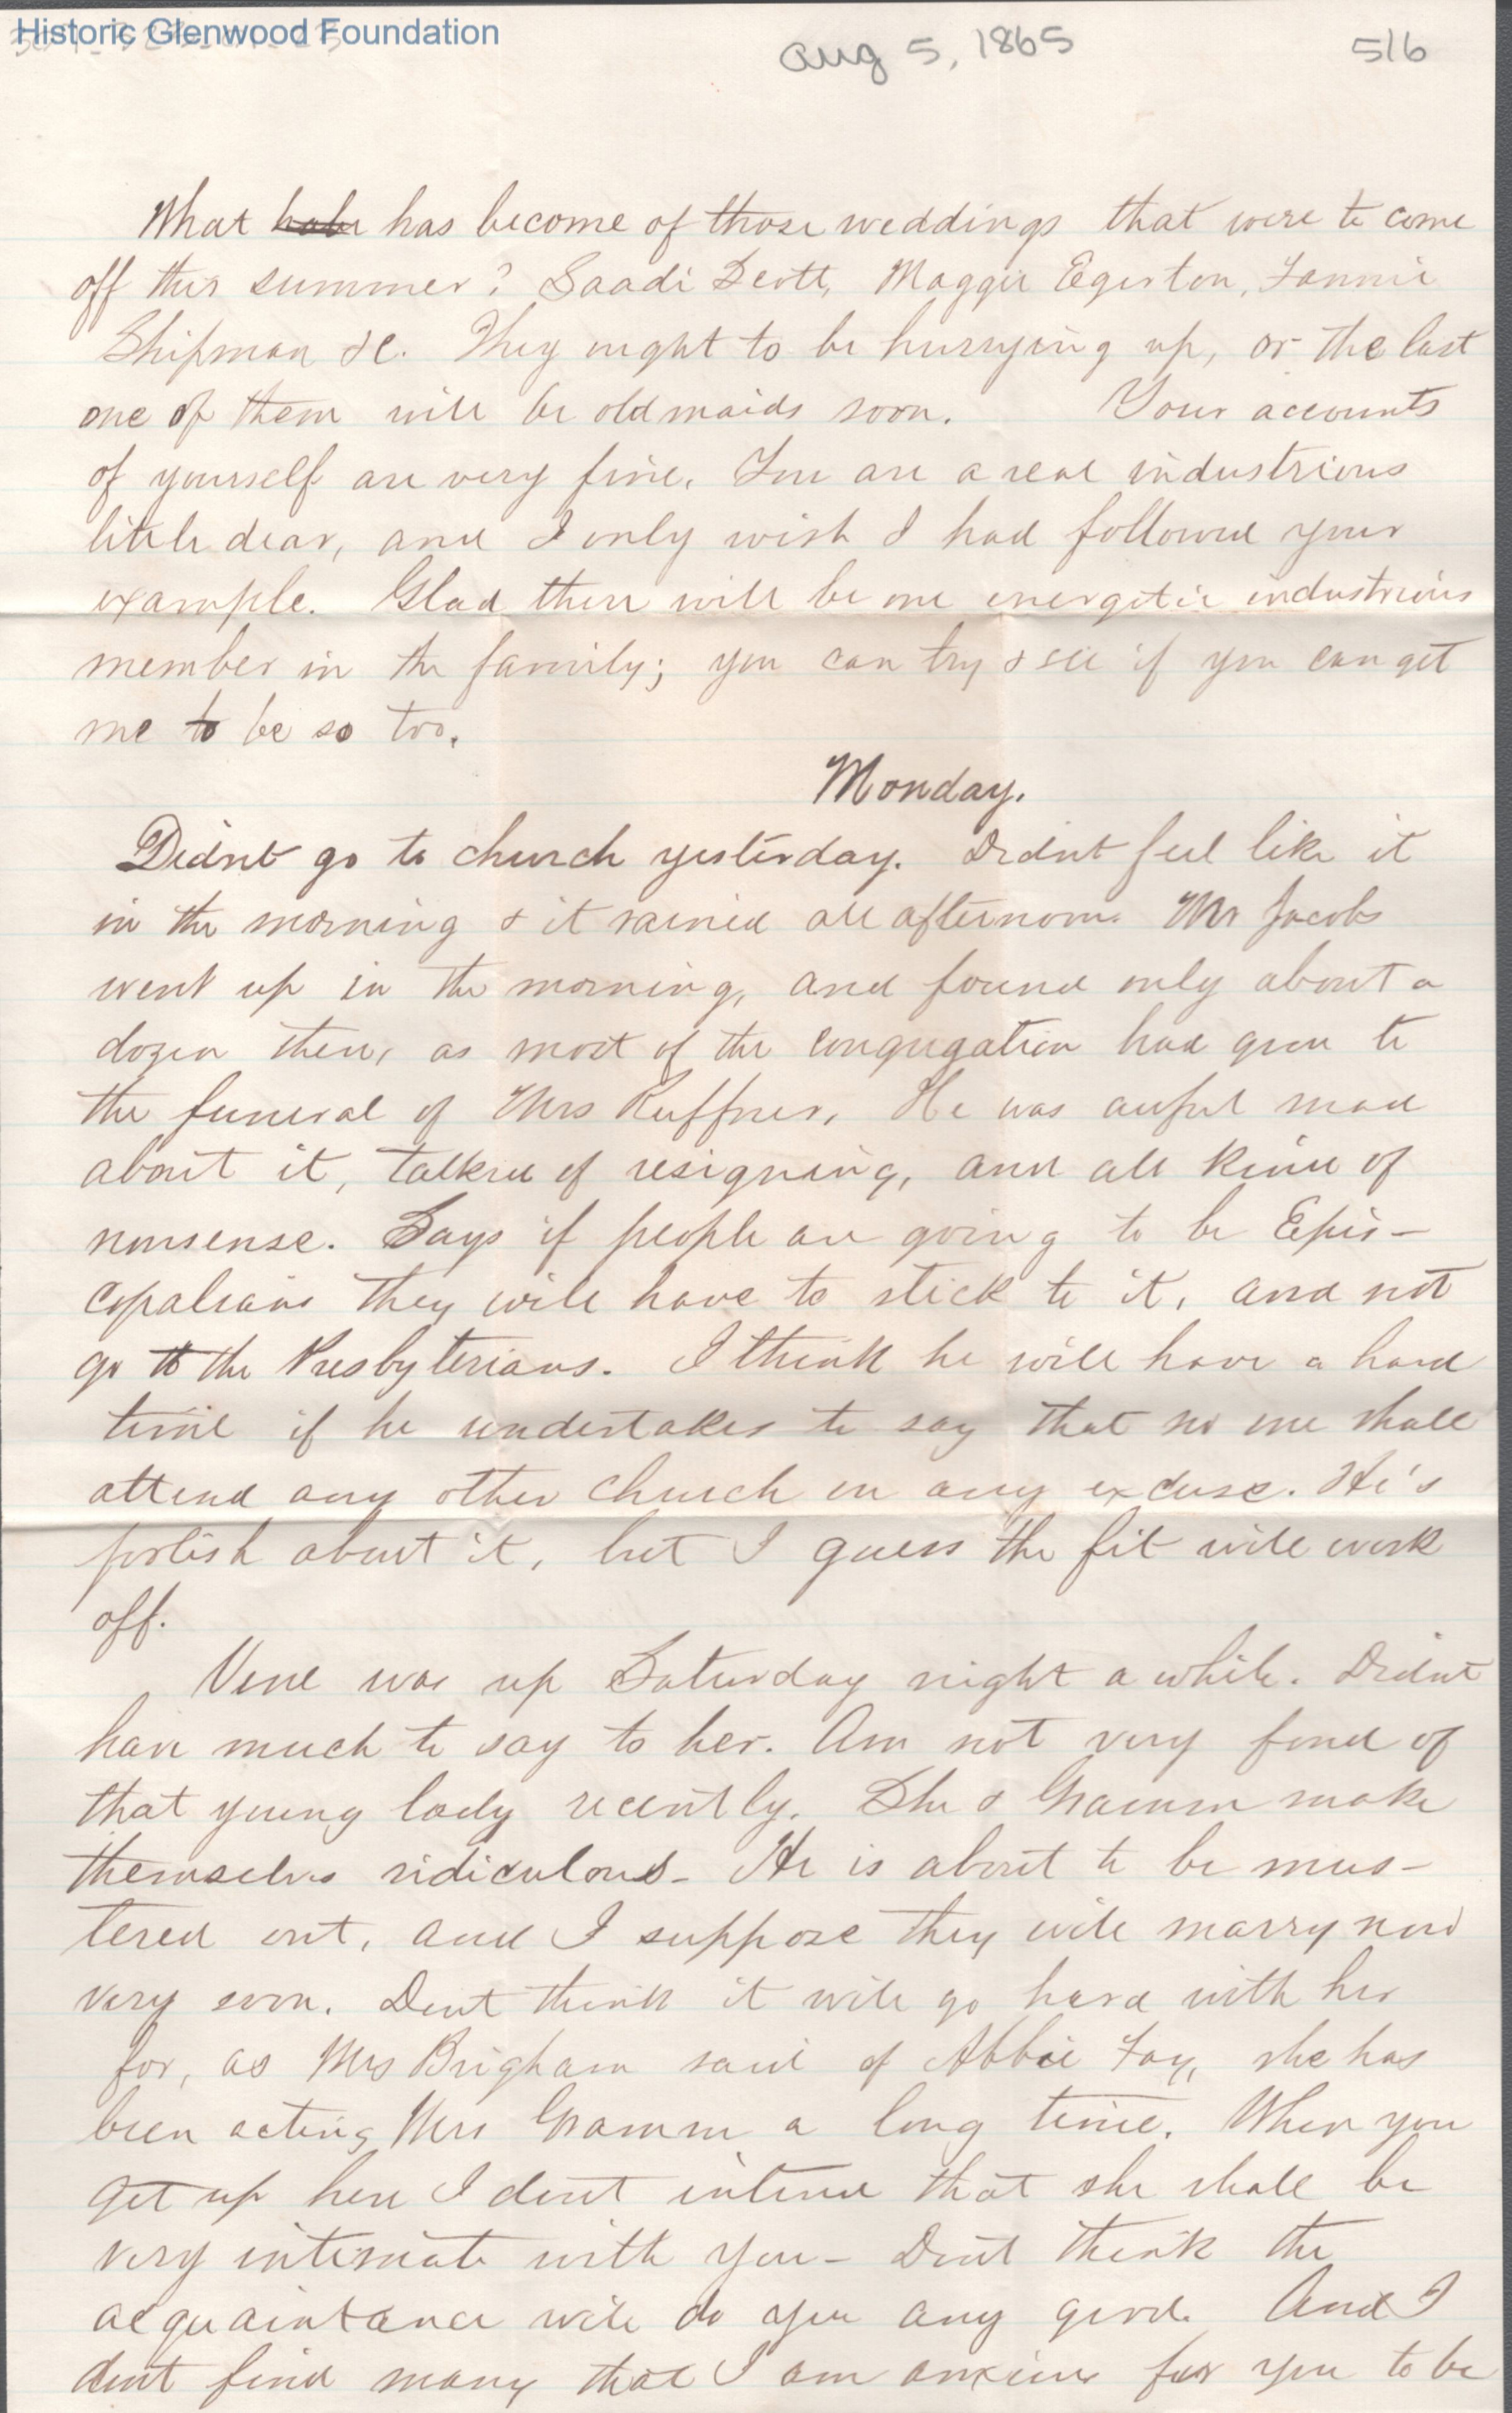 Historic Glenwood Foundation
Aug 5, 1865 516
What has become of those weddings that were to come
off this summer? Saadi Scott, Maggie Egerton, Fannie
Shipman &c. They ought to be hurrying up, or the last
one of them will be old maids soon. Your accounts
of yourself are very fine. You are a real industrious
little dear, and I only wish I had followed your
example. Glad there will be one energetic industrious
member in the family; you can try & see if you can get
me to be so too.
Monday.
Didnt go to church yesterday. Didnt feel like it
in the morning & it rained all afternoon. Mr Jacobs
went up in the morning, and found only about a
dozen there, as most of the congregation had gone to
the funeral of Mrs Ruffner. He was awful mad
about it, talked of resigning, and all kind of
nonsense. Says if people are going to be Epis-
copalians they will have to stick to it, and not
go to the Presbyterians. I think he will have a hard
time if he undertakes to say that no one shall
attend any other church on any excuse. He's
foolish about it, but I guess the fit will work
off.
Vene was up Saturday night a while. Didnt
have much to say to her. Am not very fond of
that young lady recently. She & Gramm make
themselves ridiculous- He is about to be mus-
tered out, and I suppose they will marry now
very soon. Dont think it will go hard with her
for, as Mrs Brigham said of Abbie Fay, she has
been acting Mrs Gramm a long time. When you
get up here I dont intend that she shall be
very intimate with you- Dont think the
acquaintance will do you any good. And I
dont find many that I am anxious for you to be